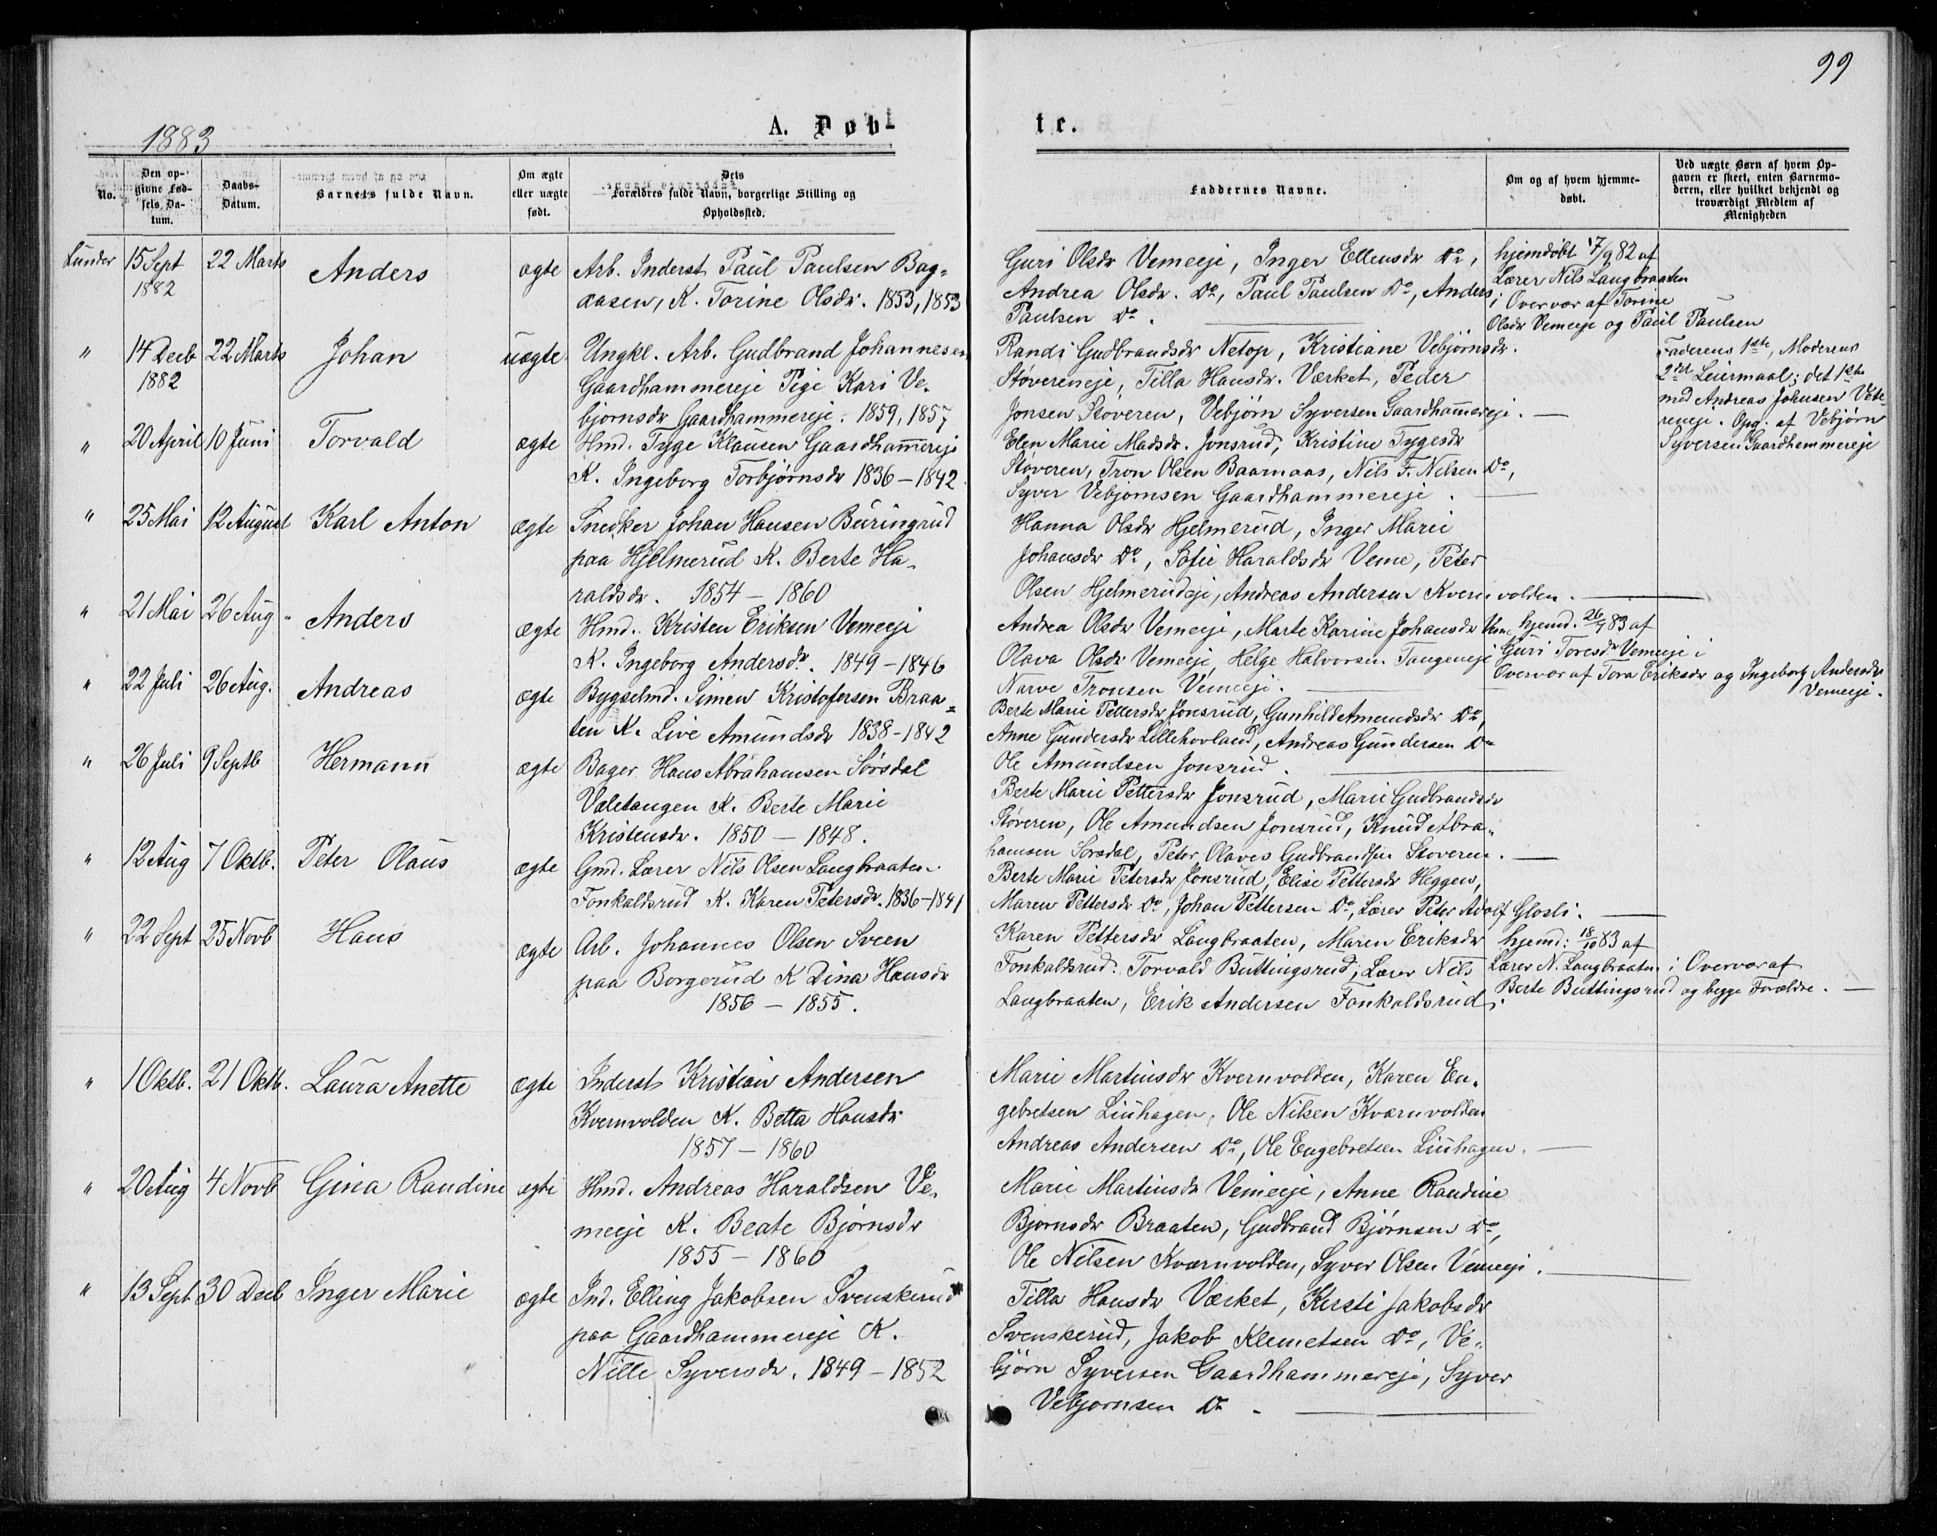 99
1883
A. Døb-
te.
No.
Den op-
givne Fød-
sels Da-
tum.
Daabs-
Datum.
Barnets fulde Navn.
Om ægte
eller uægte
født.
Dets
Forældres fulde Navn, borgerlige Stilling og
Opholdssted.
Faddernes Navne.
Om og af hvem hjemme-
døbt.
Ved uægte Børn af hvem Op-
gaven er skeet, enten Barnemo-
deren, eller hvilket bekjendt og
troværdigt Medlem af
Menigheden
Lunder 15 Sept 22 Marts Anders ægte
1882
Arb. Inderst Paul Paulsen Bag-
aasen, K. Torine Olsdr. 1853, 1853
Guri Olsdr Vemeeje, Inger Ellensdr Do,
Andrea Olsdr. Do, Paul Paulsen Do, Anders
Paulsen Do.
hjemdøbt 17/9 82 af
Lærer Nils Langbraaten
i Overvær af Torine
Olsdr Vemeeje og Paul Paulsen
" 14 Decb 22 Marts Johan uægte
1882
Ungkl. Arb. Gudbrand Johannesen
Gaardhammereje Pige Kari Ve-
bjørnsdr Gaardhammereje. 1859, 1857
Randi Gudbrandsdr Netop, Kristiane Vebjørnsdr.
Støvereneje, Tilla Hansdr. Værket, Peder
Jonsen Støveren, Vebjørn Syversen Gaardhammereje.
Faderens 1ste, Moderens
2det Leiermaal; det 1ste
med Andreas Johnsen Vete-
reneje. Opg. af Vebjørn
Syversen Gaardhammereje
" 20 April 10 Juni Torvald ægte
Hmd. Tyge Klausen Gaardhammereje
K. Ingeborg Torbjørnsdr 1836 - 1842.
Elen Marie Madsdr. Jonsrud, Kristine Tygesdr
Støveren, Tron Olsen Baarnaas, Nils F. Nilsen Do,
Syver Vebjørnsen Gaardhammereje.
" 25 Mai 12 August Karl Anton ægte
Snedker Johan Hansen Buringrud
paa Hjelmerud K. Berte Ha-
raldsdr. 1854 - 1860
Hanna Olsdr Hjelmerud, Inger Marie
Johansdr Do, Sofie Haraldsdr Veme, Peter
Olsen Hjelmerudeje, Andreas Andersen Kvernvolden.
" 21 Mai 26 Aug. Anders ægte
Hmd. Kristen Eriksen Vemeeje
K. Ingeborg Andersdr. 1849 - 1846
Andrea Olsdr Vemeeje, Marte Karine Johansdr Veme
Olava Olsdr Vemeeje, Helge Halvorsen Tangeneje
Narve Tronsen Vemeeje.
hjemd. 26/7 83 af
Guri Toresdr Vemeeje i
Overvær af Tora Eriksdr og Ingeborg Andersdr
Vemeeje.
" 22 Juli 26 Aug. Andreas ægte
Bygselmd. Simen Kristofersen Braa-
ten K. Live Amundsdr 1838 - 1842
Berte Marie Pettersdr Jonsrud, Gunhild Amundsdr Do,
Anne Gundersdr Lillehovland, Andreas Gundersen Do
Ole Amundsen Jonsrud.
" 26 Juli 9 Septb Hermann ægte
Bager Hans Abrahamsen Sørsdal
Veletangen K. Berte Marie
Kristensdr. 1850 - 1848.
Berte Marie Pettersdr Jonsrud, Marie Gudbrandsdr
Støveren, Ole Amundsen Jonsrud, Knud Abra-
hamsen Sørsdal, Peter Olaves Gudbrandsen Støveren.
" 12 Aug 7 Oktb. Peter Olaus ægte
Gmd. Lærer Nils Olsen Langbraaten
Fonkaldsrud K. Karen Petersdr. 1836 - 1841
Berte Marie Petersdr Jonsrud, Elise Pettersdr Heggen,
Maren Pettersdr Do, Johan Pettersen Do, Lærer Peter Adolf Glosli.
" 22 Sept 25 Novb Hans ægte
Arb. Johannes Olsen Sveen
paa Borgerud K Dina Hansdr
1856 - 1855.
Karen Pettersdr Langbraaten, Maren Eriksdr
Fonkaldsrud. Torvald Buttingsrud, Lærer Nils
Langbraaten, Erik Andersen Fonkaldsrud.
hjemd: 18/10 83 af
Lærer N. Langbraaten i Overvær af
Berte Buttingsrud og begge Forældre.
" 1 Oktb. 21 Oktb. Laura Anette ægte
Inderst Kristian Andersen
Kvernvolden K. Betta Hansdr
1857 - 1860
Marie Martinsdr Kvernvolden, Karen En-
gebretsen Liuhagen, Ole Nilsen Kværnvolden
Andreas Andersen Do, Ole Engebretsen Liuhagen.
" 20 Aug 4 Novb Gina Randine ægte
Hmd. Andreas Haraldsen Ve-
meeje K. Beate Bjørnsdr
1855 - 1860
Marie Martinsdr Vemeeje, Anne Randine
Bjørnsdr Braaten, Gudbrand Bjørnsen Do,
Ole Nilsen Kværnvolden, Syver Olsen Vemeeje.
" 13 Sept 30 Decb Inger Marie ægte
Ind. Elling Jakobsen Svenskerud
paa Gaardhammereje K.
Nille Syversdr. 1849 - 1852
Tilla Hansdr Værket, Kirsti Jakobsdr
Svenskerud, Jakob Klemetsen Do, Ve-
bjørn Syversen Gaardhammereje, Syver
Vebjørnsen Do.